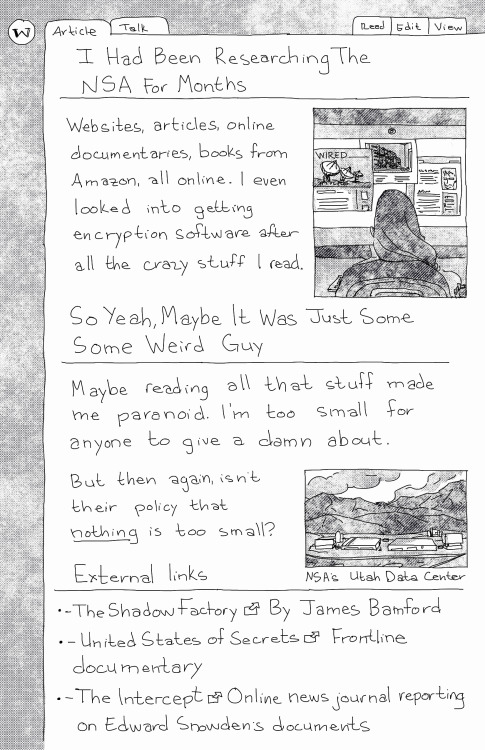 W
Article
Talk
Read
Edit
View
I Had Been Researching The
NSA For Months
Websites, articles, online
documentaries, books from
Amazon, all online. I even
looked into getting
encryption software after
all the crazy stuff I read.
WIRED
So Yeah, Maybe It Was Just Some
Some Weird Guy
Maybe reading all that stuff made
me paranoid. I'm too small for
anyone to give a damn about.
But then again, isn't
their policy that
nothing is too small?
NSA's Utah Data Center
External links
•-The Shadow Factory By James Bamford
•-United States of Secrets Frontline
documentary
•-The Intercept Online news journal reporting
on Edward Snowden's documents